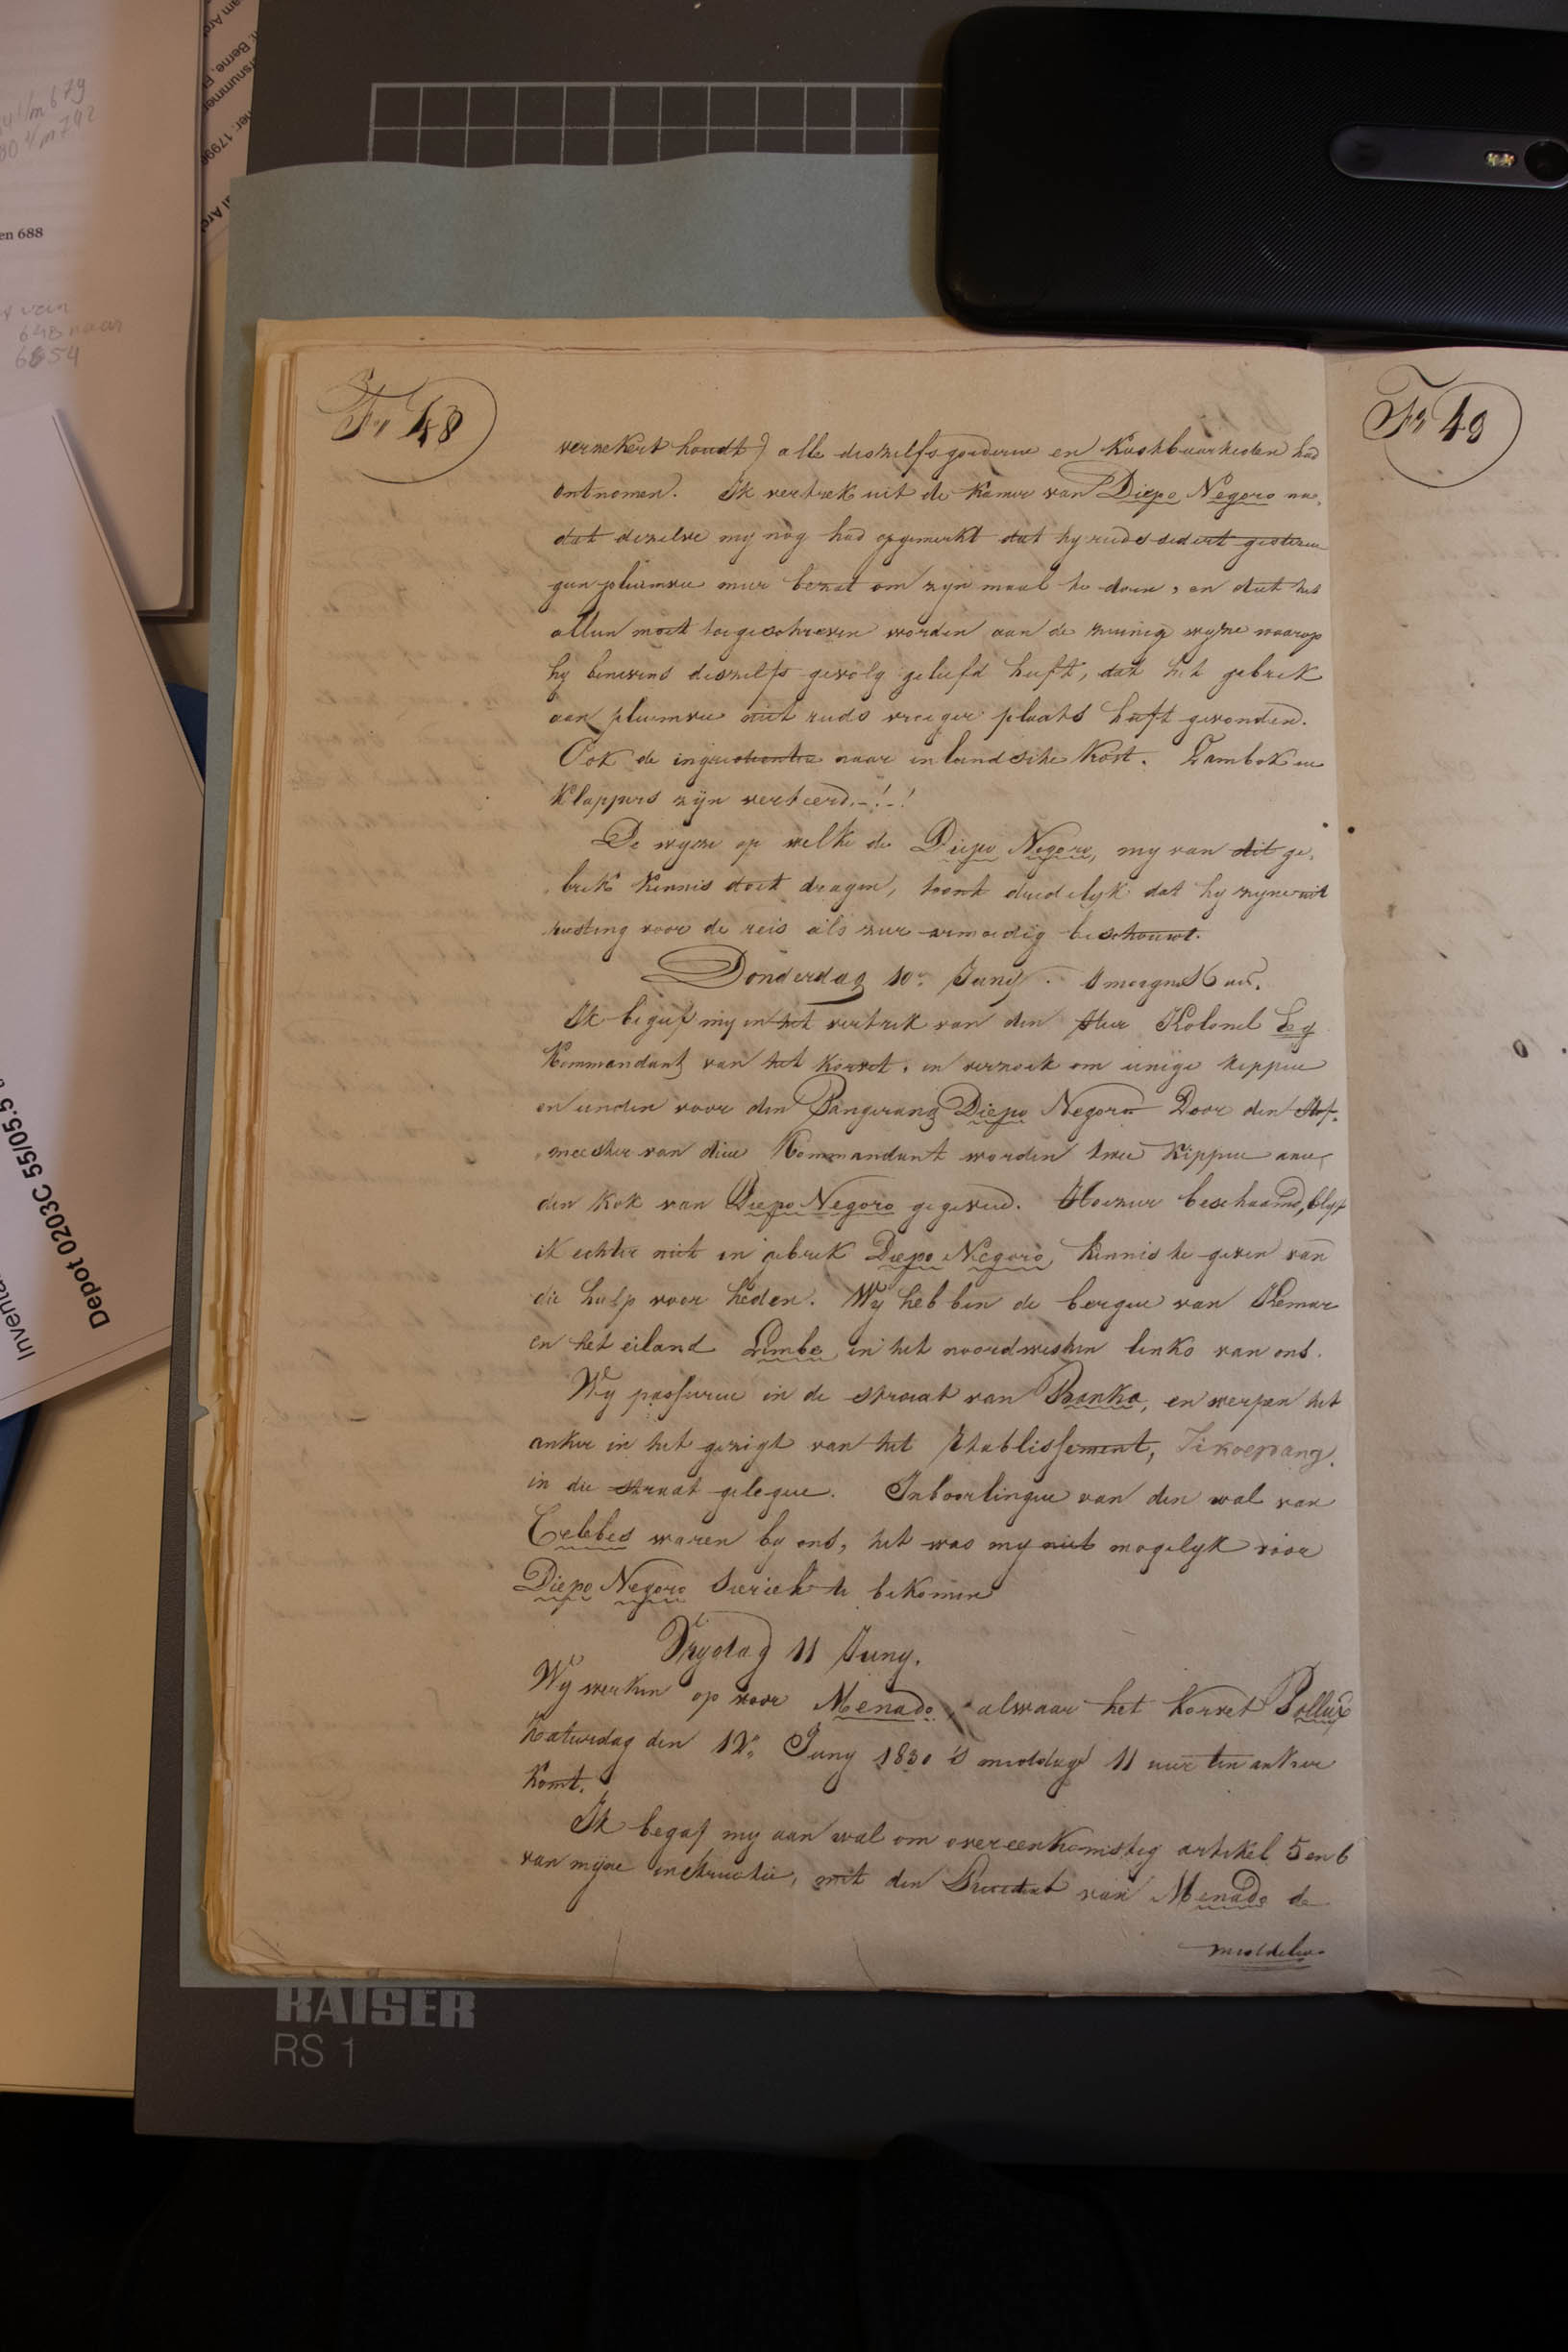 en 688
Depot 0203C 55/05.5
KAISER
RS 1
Fo 48
Fo 49
verzekert houdt) alle deszelfs goederen en kostbaarheden had
ontnomen. Ik vertrek uit de kamer van Diepo Negoro na,
dat dezelve my nog had opgemerkt dat hy reeds sedert gisteren
geen pluimvee meer bezat om zyn maal te doen, en dat het
alleen moet toegeschreven worden aan de zuinig wyze waarop
hy benevens deszelfs gevolg geleefd heeft, dat het gebrek
aan pluimvee niet reeds vroeger plaats heeft gevonden.
Ook de ingredienten naar inlandsche kost. Sambok en
Klappers zyn verteerd.-!-!
De wyze op welke de Diepo Negoro, my van dit ge,
brek kennis doet dragen, toont duidelyk dat hy zyne uit
rusting voor de reis als zeer armoedig beschouwt.
Donderdag 10n Juny. smorgens 6 uur.
Ik begeef my in het vertrek van den Heer Kolonel Eeg
Kommandant van het korvet, en verzoek om eenige kippen
en eenden voor den Pangerang Diepo Negoro Door den Hof,
meester van dien Kommandant worden twee kippen aan
den kok van Diepo Negoro gegeven. Hoezeer beschaamd, blyf
ik echter niet in gebrek Diepo Negoro, kennis te geven van
die hulp voor heden. Wy hebben de bergen van Kemar
en het eiland Limbe in het noordwesten links van ons.
Wy passeren in de straat van Banka, en werpen het
anker in het gezigt van het Etablissement, Likoepang.
in die straat gelegen. Inboorlingen van den wal van
Celebes waren by ons, het was my niet mogelyk voor
Diepo Negoro Sierieh te bekomen
Vrydag 11 Juny.
Wy werken op voor Menado, alwaar het korvet Pollux
Zaturdag den 12n Juny 1830 's middags 11 uur ten anker
komt.
Ik begaf my aan wal om overeenkomstig artikel 5 en 6
van mijne instructie, met den Resident van Menado de
middelen